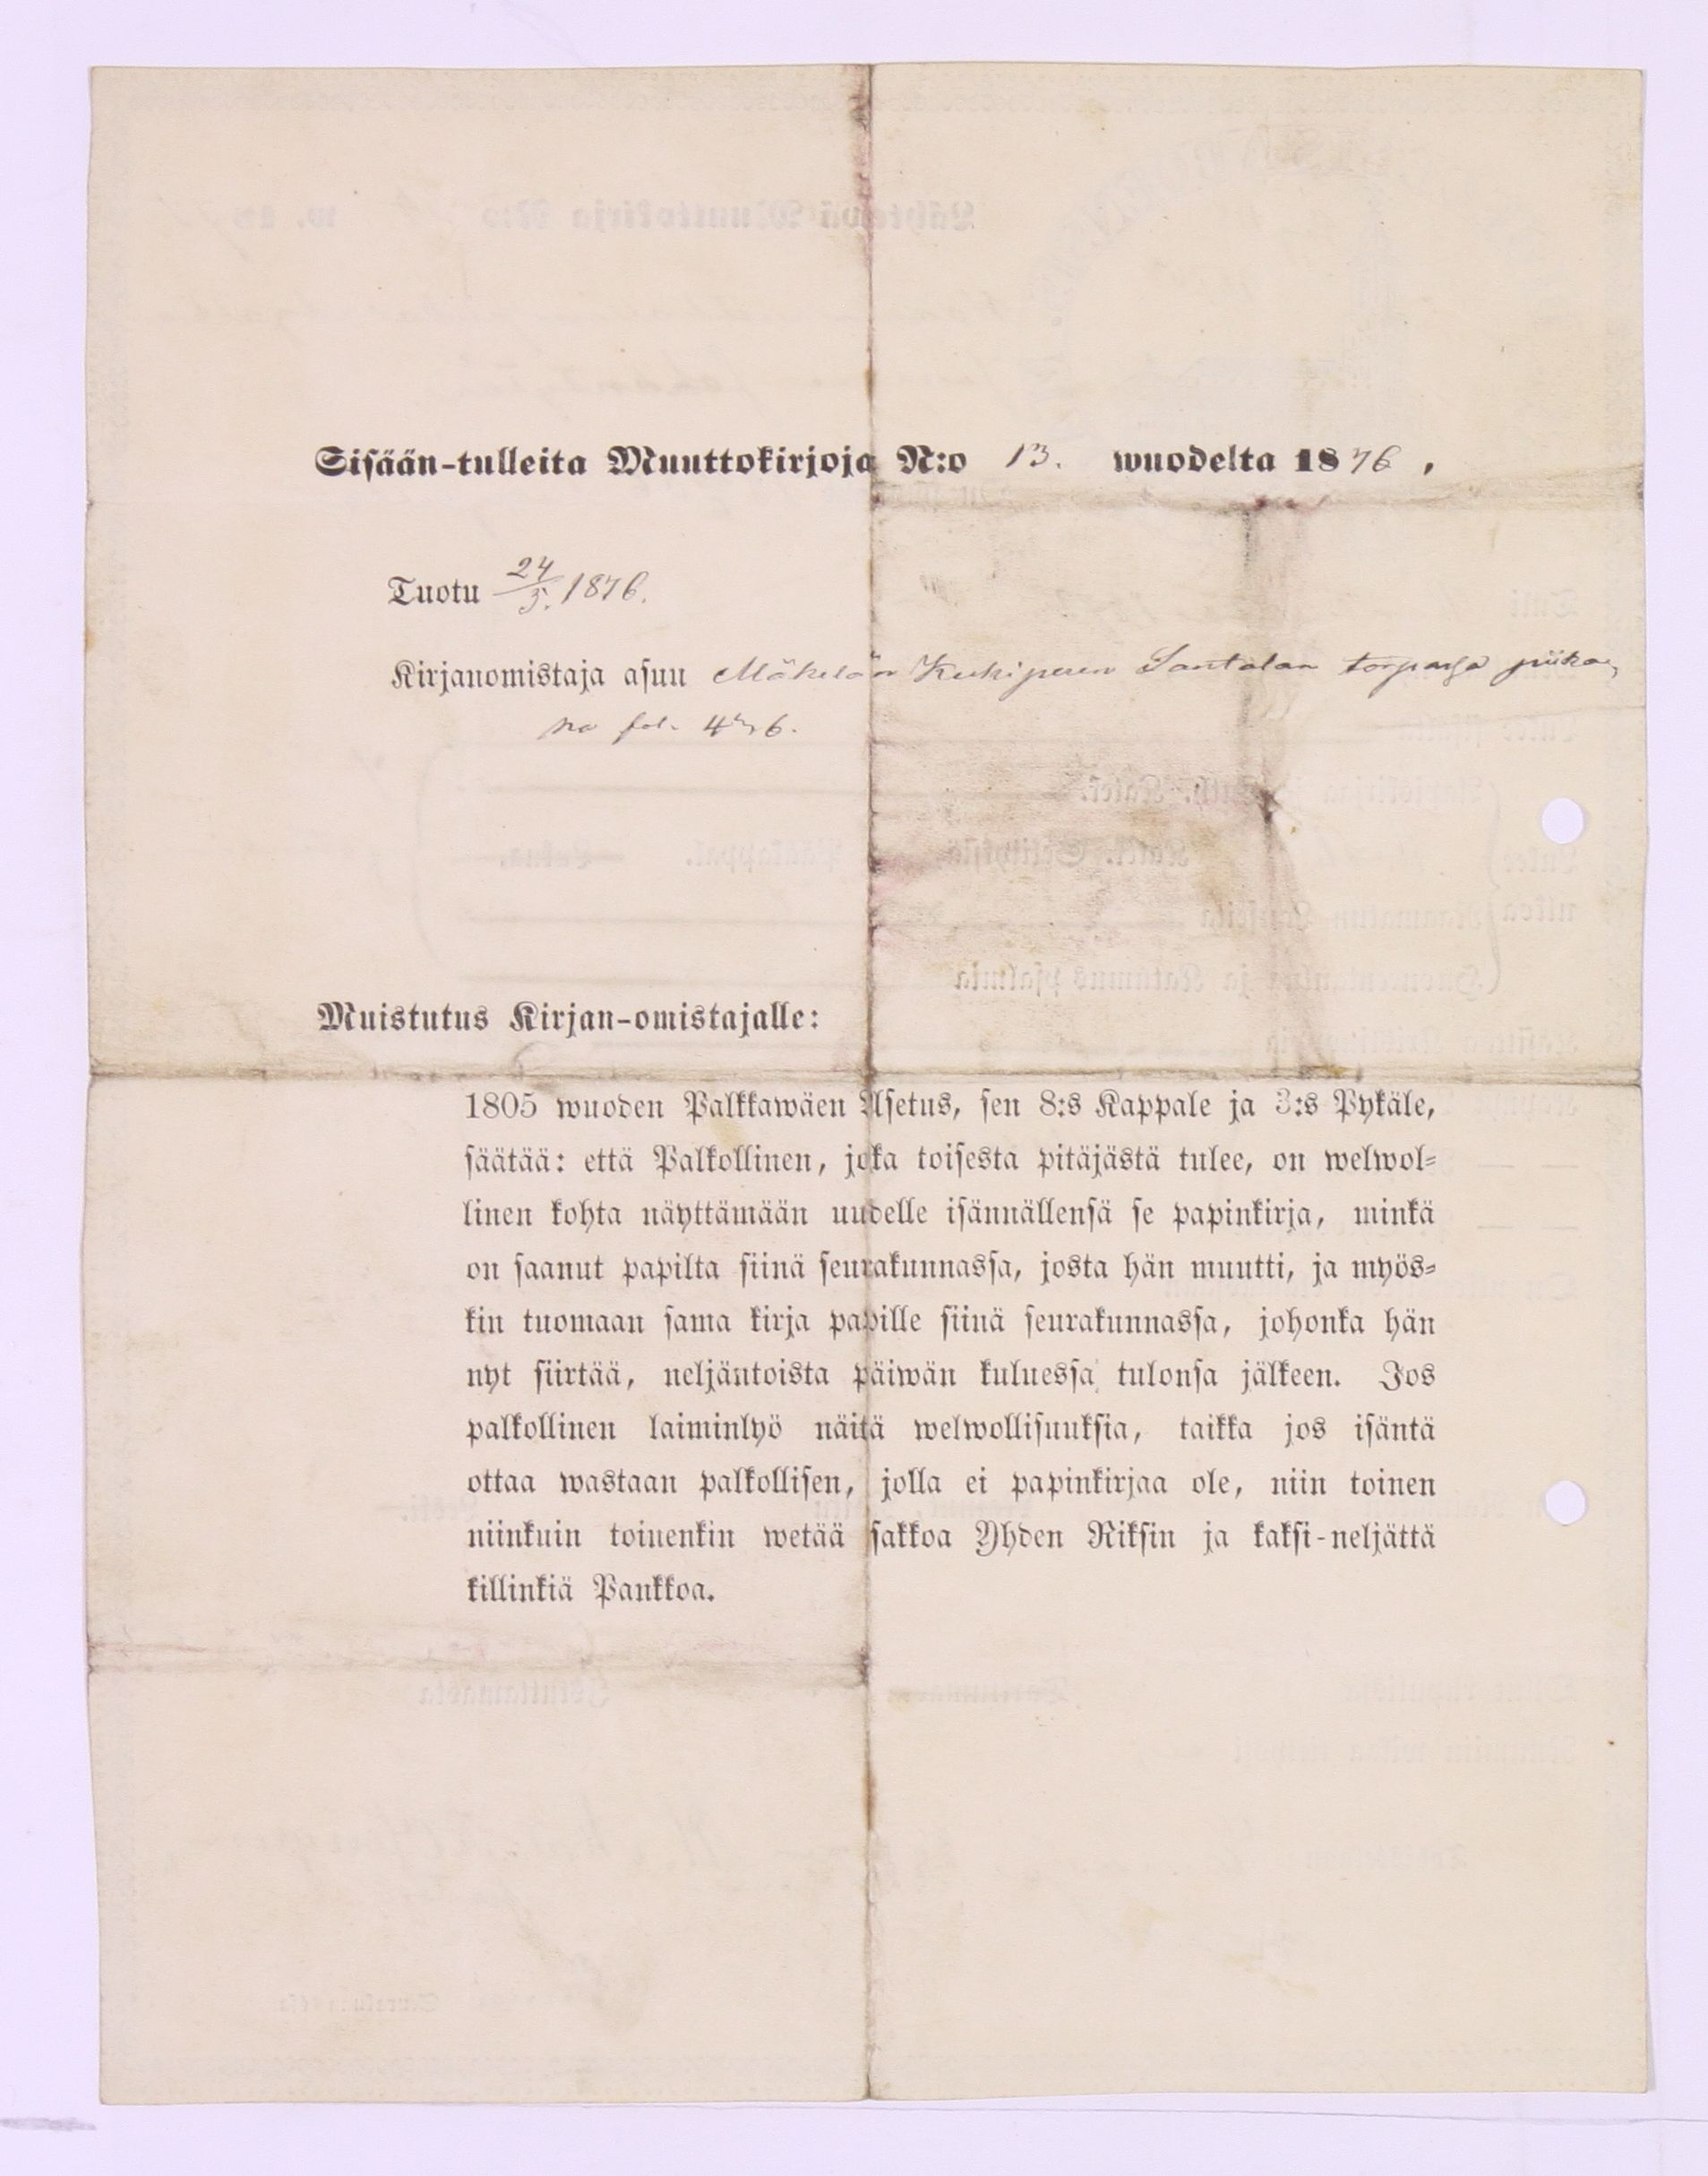 Sisään-tulleita Muuttokirjoja N:o 13. wuodelta 1876,
Tuotu 24/5. 1876.
Kirjanomistaja asuu Mäkelän Santalan torpassa piika,
na fol. 476.
Muistutus Kirjan-omistajalle:
1805 wuoden Palkkawäen Asetus, sen 8:s Kappale ja 3:s Pykäle,
säätää: että Palkollinen, joka toisesta pitäjästä tulee, on welwol=
linen kohta näyttämään uudelle isännällensä se papinkirja, minkä
on saanut papilta siinä seurakunnassa, josta hän muutti, ja myös=
kin tuomaan sama kirja papille siinä seurakunnassa, johonka hän
nyt siirtää, neljäntoista päiwän kuluessa tulonsa jälkeen. Jos
palkollinen laiminlyö näitä welwollisuuksia, taikka jos isäntä
ottaa wastaan palkollisen, jolla ei papinkirjaa ole, niin toinen
niinkuin toinenkin wetää sakkoa Yhden Riksin ja kaksi-neljättä
killinkiä Pankkoa.